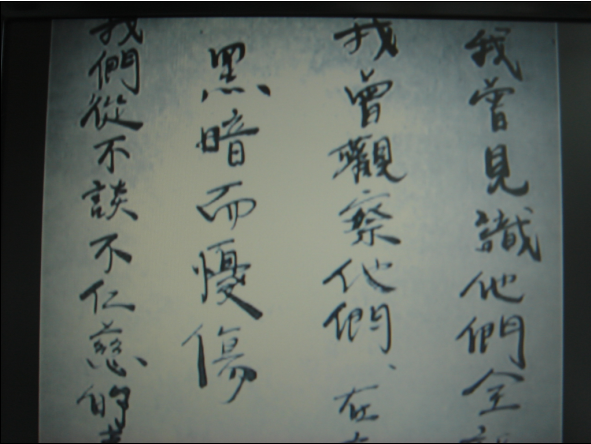 我曾見識他們全
我曾觀察他們、在
黑暗而憂傷
我們從不談不仁慈的